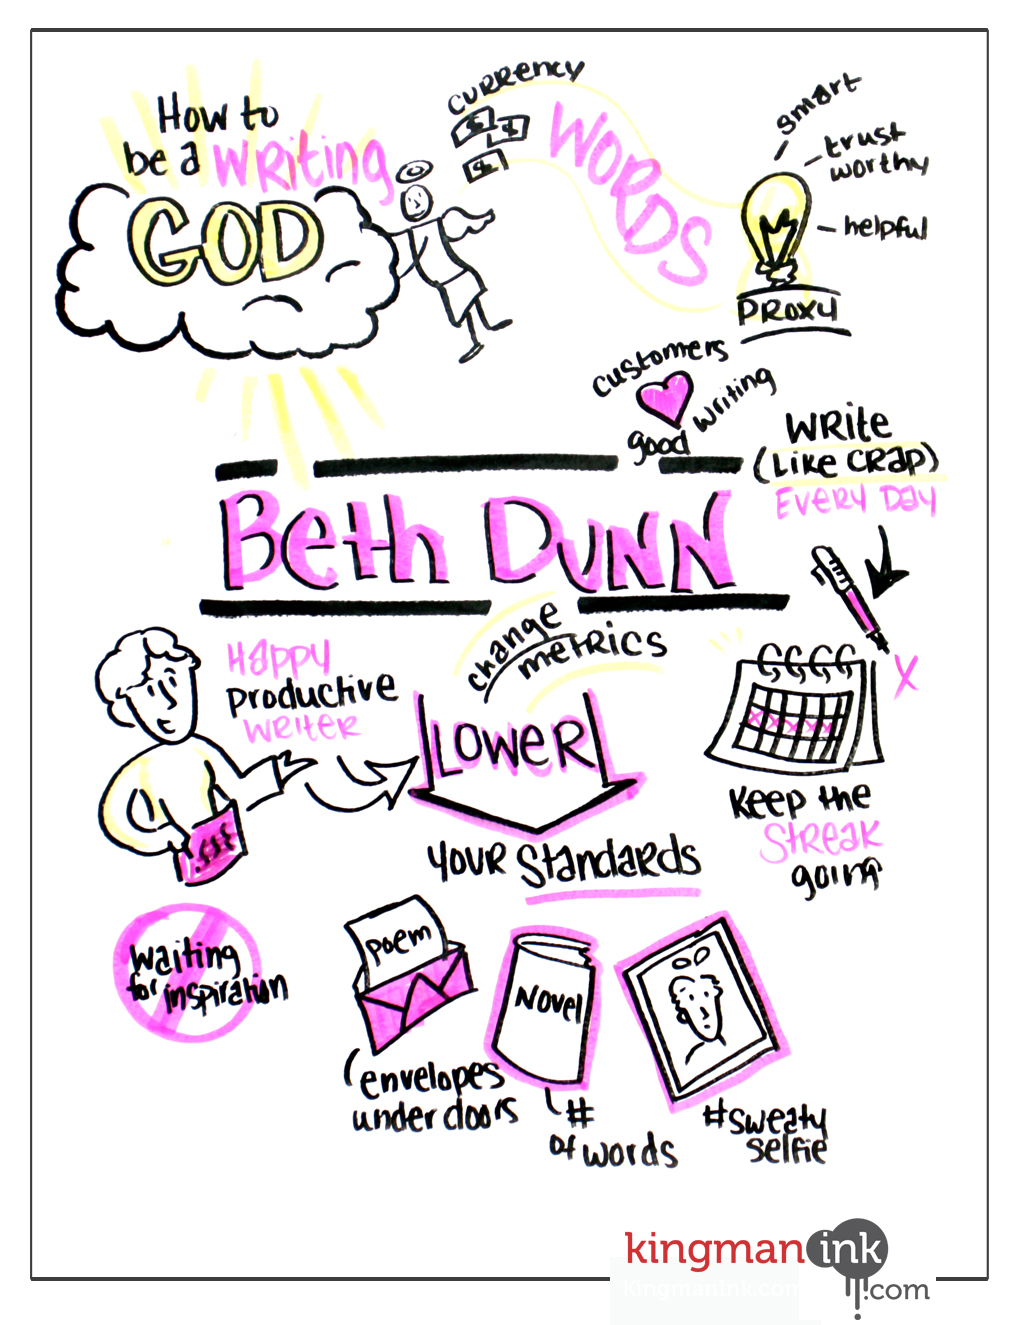 How to
be a Writing
GOD
CURRENCY
$ $
$
WORDS
smart
trust
worthy
helpful
PROXY
customers
good writing
WRite
(Like CRAP)
EVERY DAY
Beth Dunn
change
metrics
Happy
Productive
WRiteR
LOWeR
YOUR Standards
X
X X X X X
Keep the
StReaK
going
waiting
for inspiration
poem
Novel
envelopes
under doors
#
of words
#sweaty
selfie
kingmanink
.com
KingmanInk.com